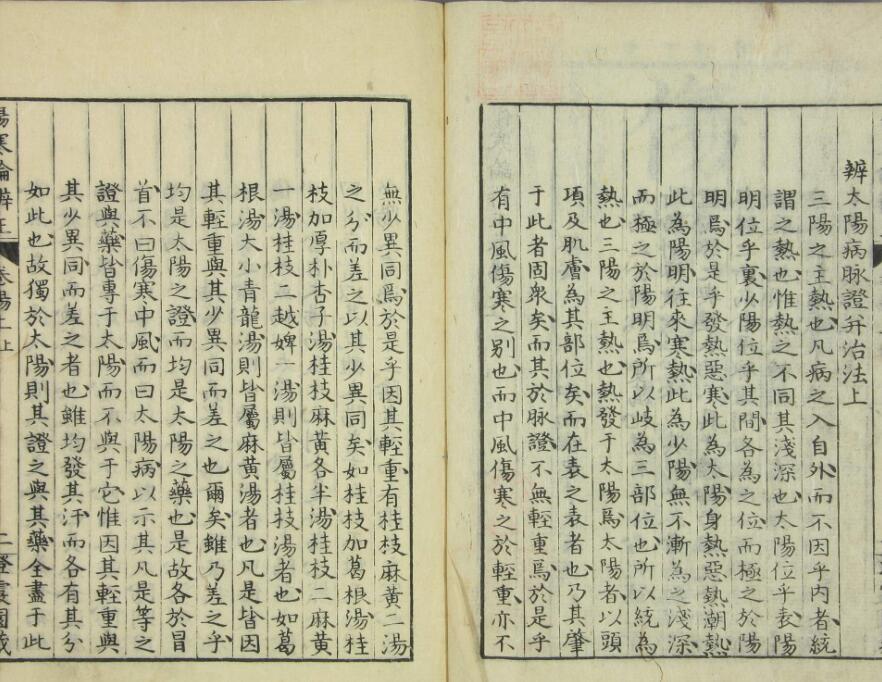 辨太陽病脉證并治法上
三陽之主熱也凡病之入自外而不因乎内者統
謂之熱也惟熱之不同其淺深也太陽位乎表陽
明位乎裏少陽位乎其間各為之位而極之於陽
明焉於是乎發熱惡寒此為太陽身熱惡熱潮熱
此為陽明往來寒熱此為少陽無不漸為之淺深
而極之於陽明焉所以歧為三部位也所以統為
熱也三陽之主熱也熱發于太陽焉太陽者以頭
項及肌膚為其部位矣而在表之表者也乃其肇
于此者固衆矣而其於脉證不無輕重焉於是乎
有中風傷寒之別也而中風傷寒之於輕重亦不
無少異同焉於是乎因其輕重有桂枝麻黄二湯
之分而差之以其少異同矣如桂枝加葛根湯桂
枝加厚朴杏子湯桂枝麻黄各半湯桂枝二麻黄
一湯桂枝二越婢一湯則皆屬桂枝湯者也如葛
根湯大小青龍湯則皆屬麻黄湯者也凡是皆因
其輕重與其少異同而差之也爾矣雖乃差之乎
均是太陽之證而均是太陽之藥也是故各於冒
首不曰傷寒中風而曰太陽病以示其凡是等之
證與藥皆專于太陽而不與于它惟因其輕重與
其少異同而差之者也雖均發其汗而各有其分
如此也故獨於太陽則其證之與其藥全盡于此
傷寒論辨正
卷陽上上
二